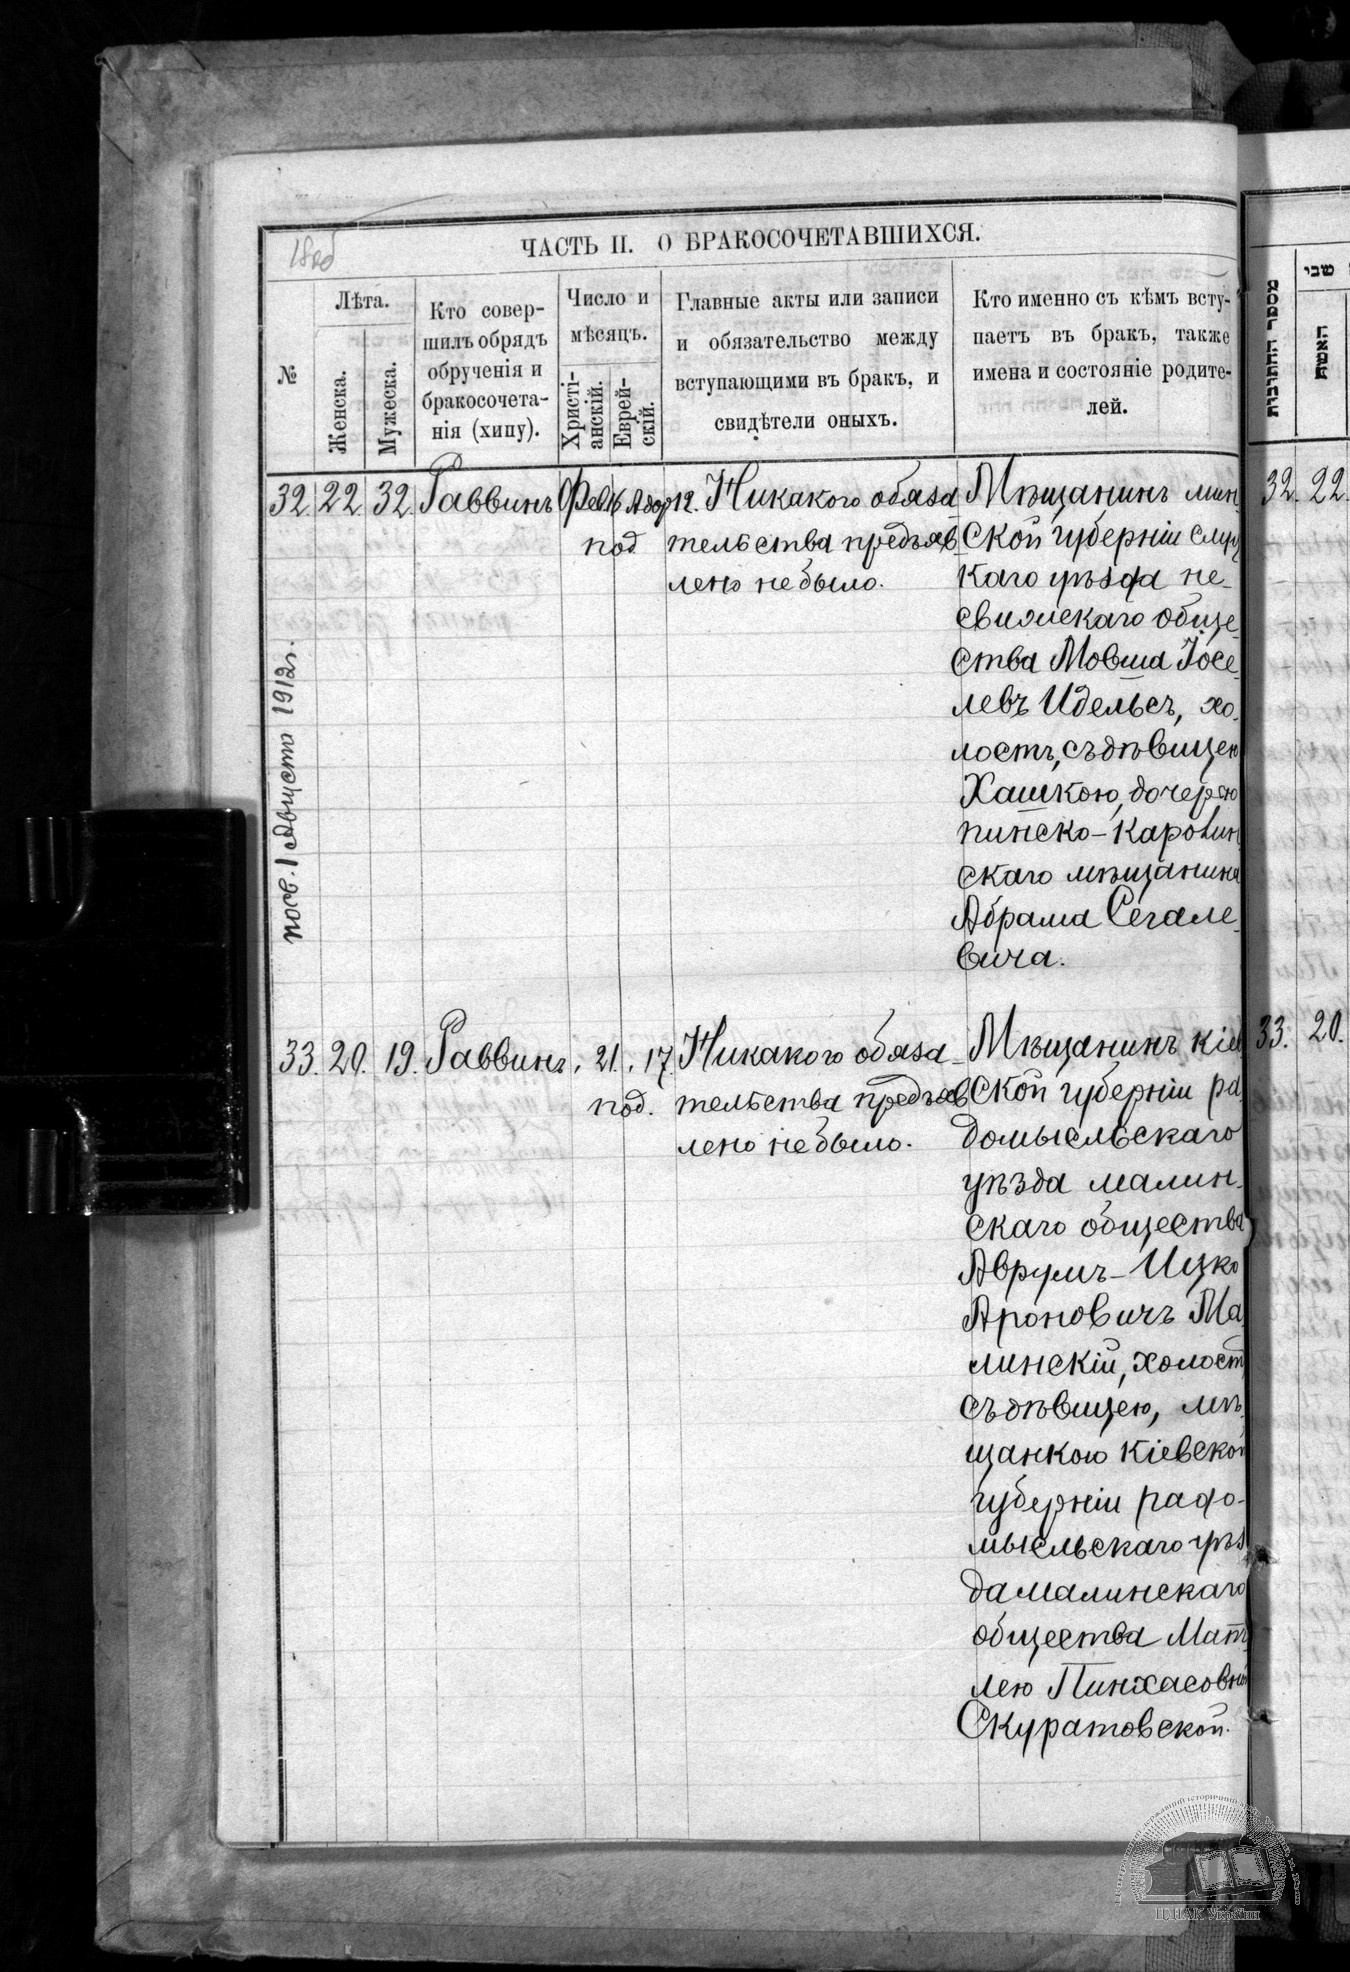 ЧАСТЬ II. О БРАКОСОЧЕТАВШИХСЯ.
№
Лѣта.
Женска.
Мужеска.
Кто совер-
шилъ обрядъ
обрученія и
бракосочета-
нія (хипу).
Число и
мѣсяцъ.
Христі-
анскій.
Еврей-
скій.
Главные акты или записи
и обязательство между
вступающими въ бракъ, и
свидѣтели оныхъ.
Кто именно съ кѣмъ всту-
паетъ въ бракъ, также
имена и состояніе родите-
лей.
32. 22. 32. Раввинъ Фев. 16 Адор 12.
под
Никакого обяза
тельства предъяв
лено не было.
Мѣщанинъ мин
ской губерніи слуц
каго уѣзда не-
свижскаго обще-
ства Мовша Іосе-
левъ Идельсъ, хо-
лостъ, съ дѣвицею
Хашкою, дочерью
пинско-каролин
скаго мѣщанина
Абрама Сегале-
вича.
посв. 1 Августа 1912г.
33. 20. 19. Раввинъ, 21., 17.
под.
Никакого обяза-
тельства предъяв
лено не было.
Мѣщанинъ кіев
ской губерніи ра
домысльскаго
уѣзда малин-
скаго общества
Аврумъ-Ицко
Ароновичъ Ма
линскій, холост
съ дѣвицею, мѣ-
щанкою кіевской
губерніи радо-
мысльскаго уѣз
да малинскаго
общества Мат
лею Пинхасовной
Скуратовской.
מספר החתונות
שני
האשה
32. 22.
33. 20.
ЦДІАК України